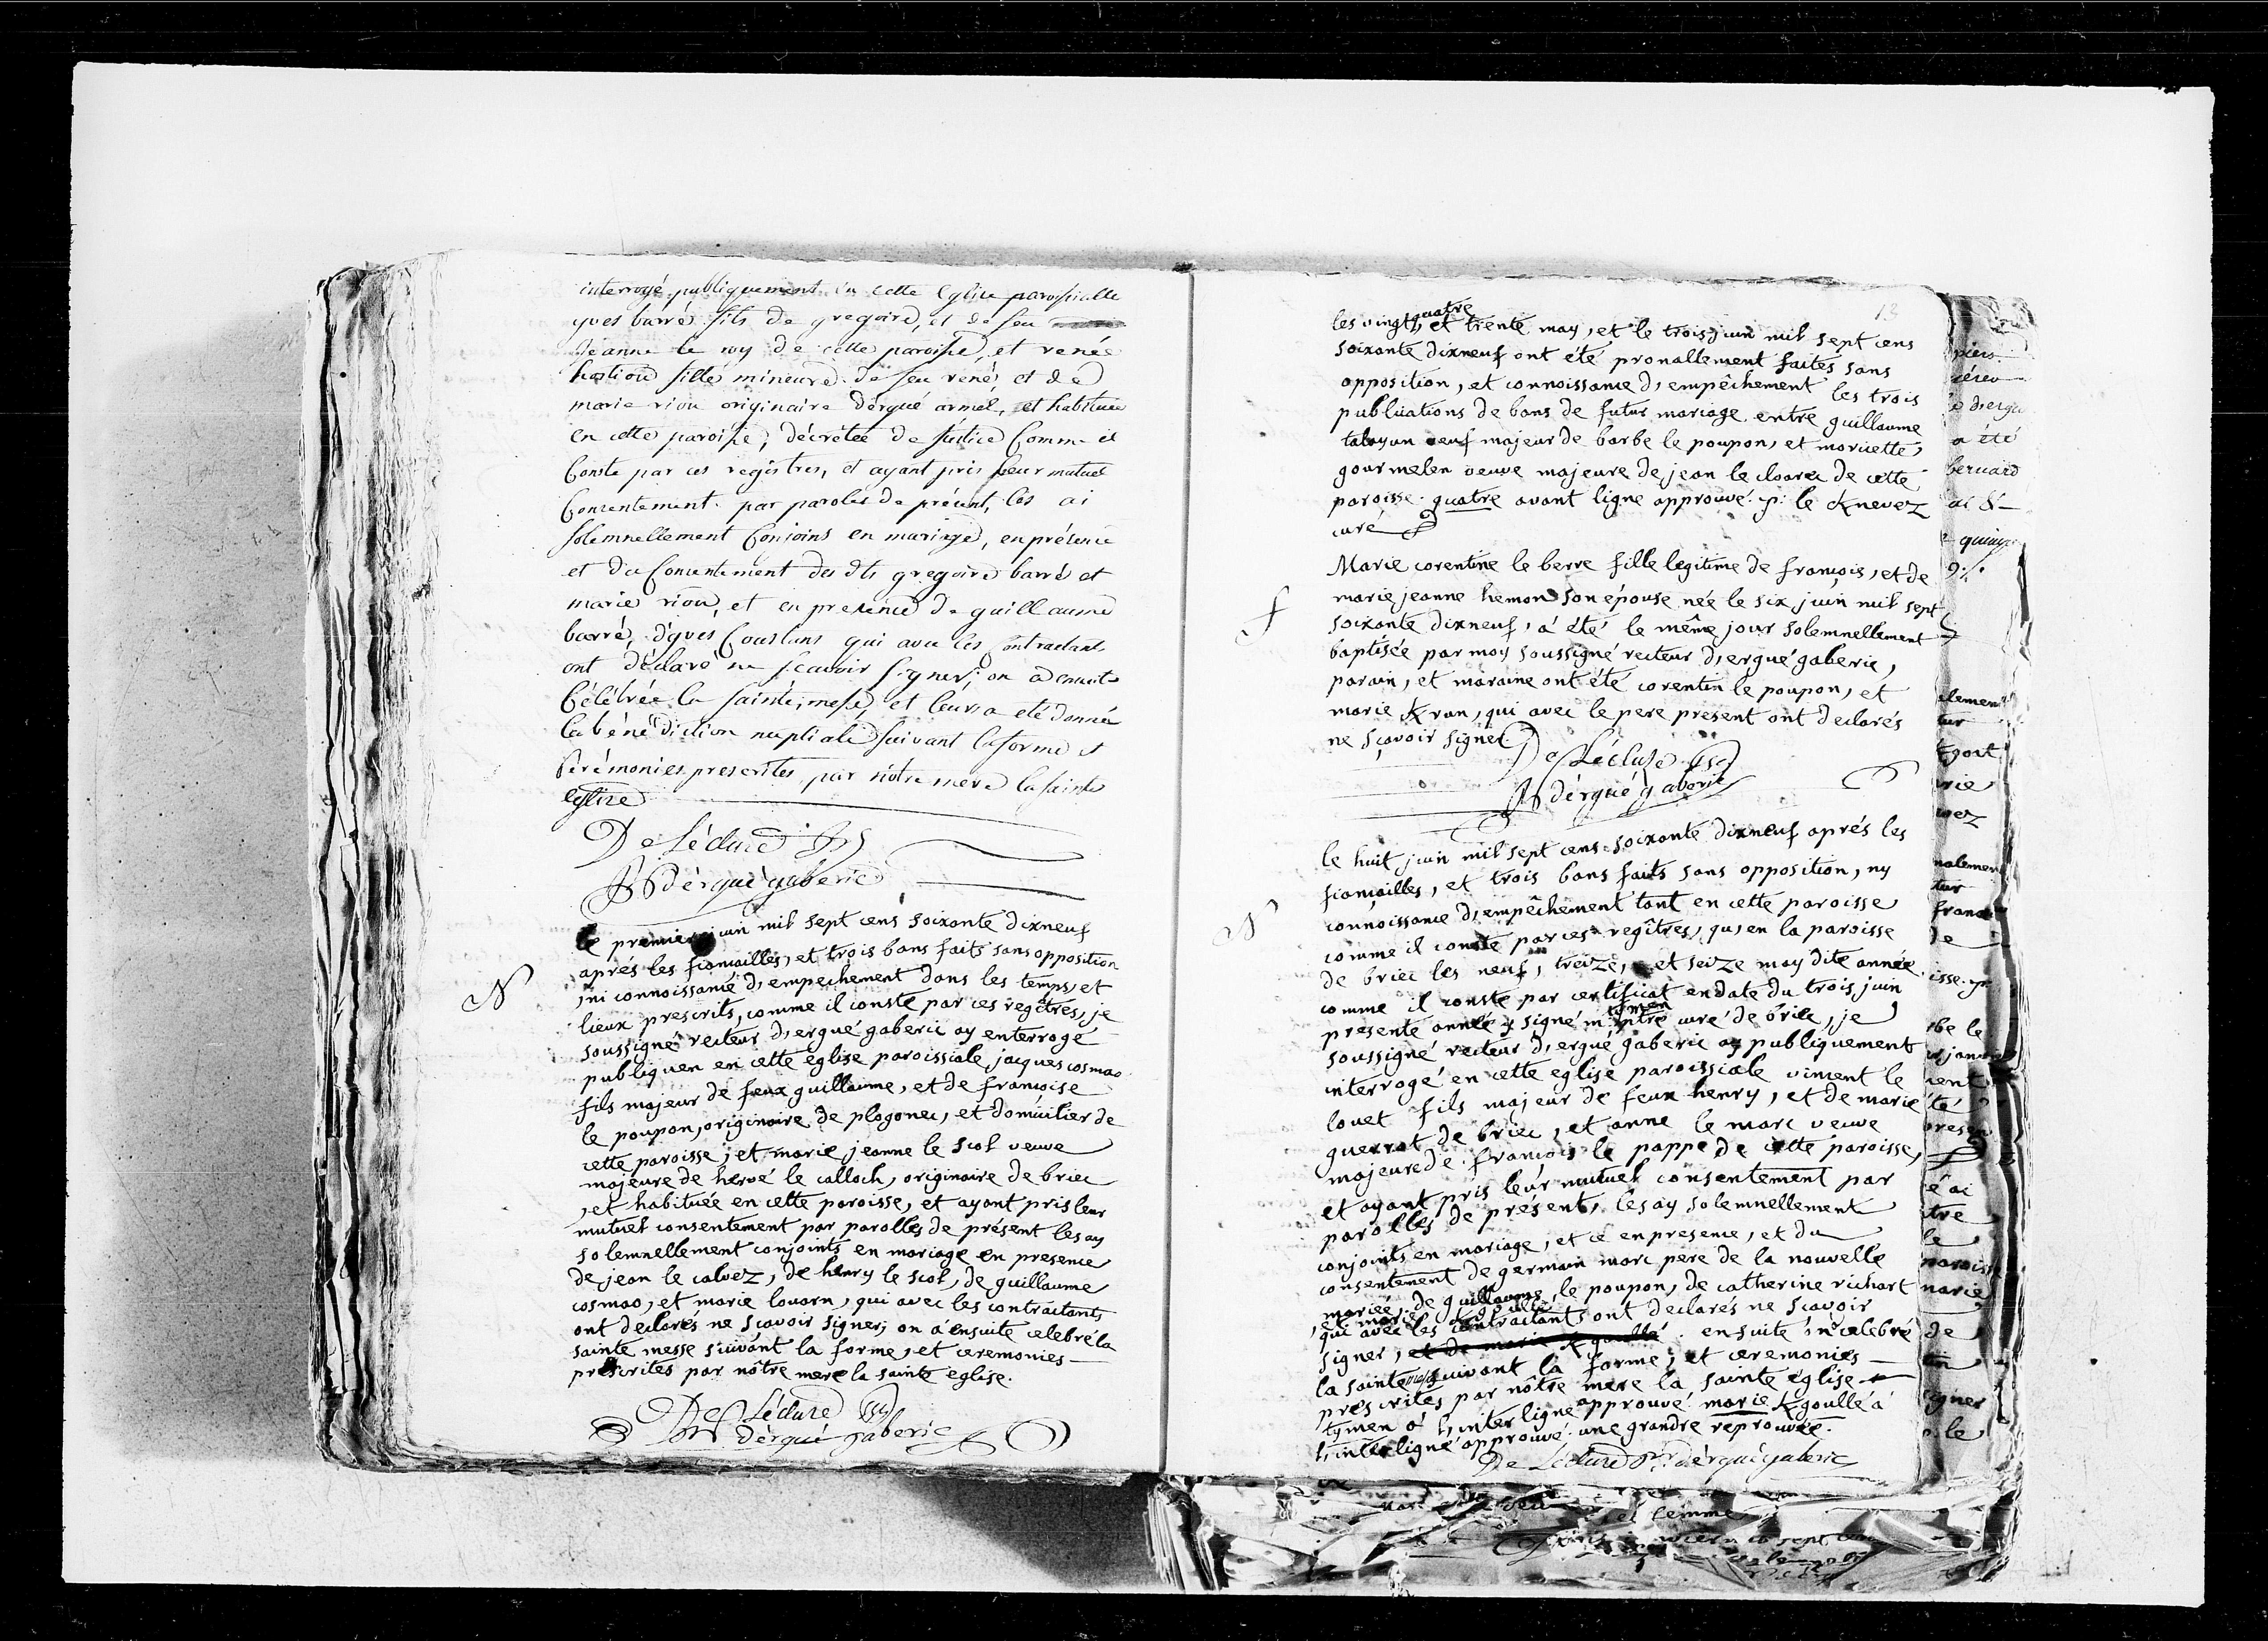 interrogé publiquement en cette Eglise paroissialle
yves barré fils de gregoire, et de feu
Jeanne le roy de cette paroisse, et renée
fille mineure de feu rené, et de
marie riou originaire d'ergué armel, et habituée
en cette paroisse, décrétée de Justice Comme il
Conste par ces registres, et ayant pris leur mutuel
Consentement par paroles de présent, les ai
solemnellement Conjoins en mariage, en présence
et du Consentement des dts gregoire barré et
marie riou, et en presence de guillaume
barré, d'yves Coustans qui avec les Contractants
ont déclaré ne scavoir signer; on a ensuite
Célébrée la sainte messe, et leurs a eté donnée
la bénédiction nuptiale suivant la forme et
Cérémonies prescrites par nôtre mere la sainte
eglise
De Lécluse
d'ergué gaberic
le premier juin mil sept cens soixante dixneuf
N
aprés les fiançailles, et trois bans faits sans opposition
, ni connoissance d'empechement dans les temps, et
lieux prescrits, comme il conste par ces regîtres, je
soussigné recteur d'ergué gaberic ay enterrogé
publiquen en cette eglise paroissiale jacques cosmao
fils majeur de feux guillaume, et de françoise
le poupon, originaire de plogonec, et domicilier de
cette paroisse; et marie jeanne le scol veuve
majeure de hervé le calloch, originaire de briec
, et habituée en cette paroisse, et ayant pris leur
mutuel consentement par parolles de présent les ay
solemnellement conjoints en mariage en presence
de jean le calvez, de henry le scol, de guillaume
cosmao, et marie louarn, qui avec les contractants
ont declarés ne sçavoir signer; on á ensuite celebré la
sainte messe suivant la forme, et ceremonies
prescrites par nôtre mere la sainte eglise.
De Lécluse
d'ergué gaberic
13
les vingt quatre, et trente may, et le trois juin mil sept cens
soixante dixneuf ont été pronallement faités sans
opposition, et connoissance d'empêchement les trois
publications de bans de futur mariage entre guillaume
veuf majeur de barbe le poupon, et moricette
gourmelen veuve majeure de jean le cloarec de cette
paroisse. quatre avant ligne approuvé. p: le Knevez
curé
Marie corentine le berre fille legitime de françois, et de
marie jeanne hemon son épouse née le six juin mil sept
soixante dixneuf, á été le même jour solemnellement
baptisée par moy soussigné recteur d'ergué gaberic,
parain, et maraine ont été corentin le poupon, et
marie Kvran, qui avec le pere present ont declarés
ne sçavoir signer
De Lécluse
d'ergué gaberic
le huit juin mil sept cens soixante dixneuf aprés les
N
fiançailles, et trois bans faits sans opposition, ny
connoissance d'empêchement tant en cette paroisse
comme il conste par ces regîtres, qu'en la paroisse
de briec les neuf, treize, et seize may dite année
comme il conste par certificat en date du trois juin
presente année y signé curé de briec, je
soussigné recteur d'ergué gaberic ay publiquement
interrogé en cette eglise paroissiale vincent le
louet fils majeur de feux henry, et de marie
guerrot de briec, et anne le marc veuve
majeure de françois le pappe de cette paroisse,
et ayant pris leur mutuel consentement par
parolles de présent, les ay solemnellement
conjoints en mariage, et ce en presence, et du
consentement de germain marc pere de la nouvelle
mariée, de guillaume le poupon, de catherine richart
et marie Kgoullé
, qui avec les contractants ont declarés ne sçavoir
signer, et de marie Kgoullé. ensuite celebré
la sainte messe suivant la forme, et ceremonies
prescrites par nôtre mere la sainte église
tymen á l'interligne approuvé marie Kgoullé á
l'interligne approuvé. une grandre réprouvée.
De Lécluse d'ergué gaberic